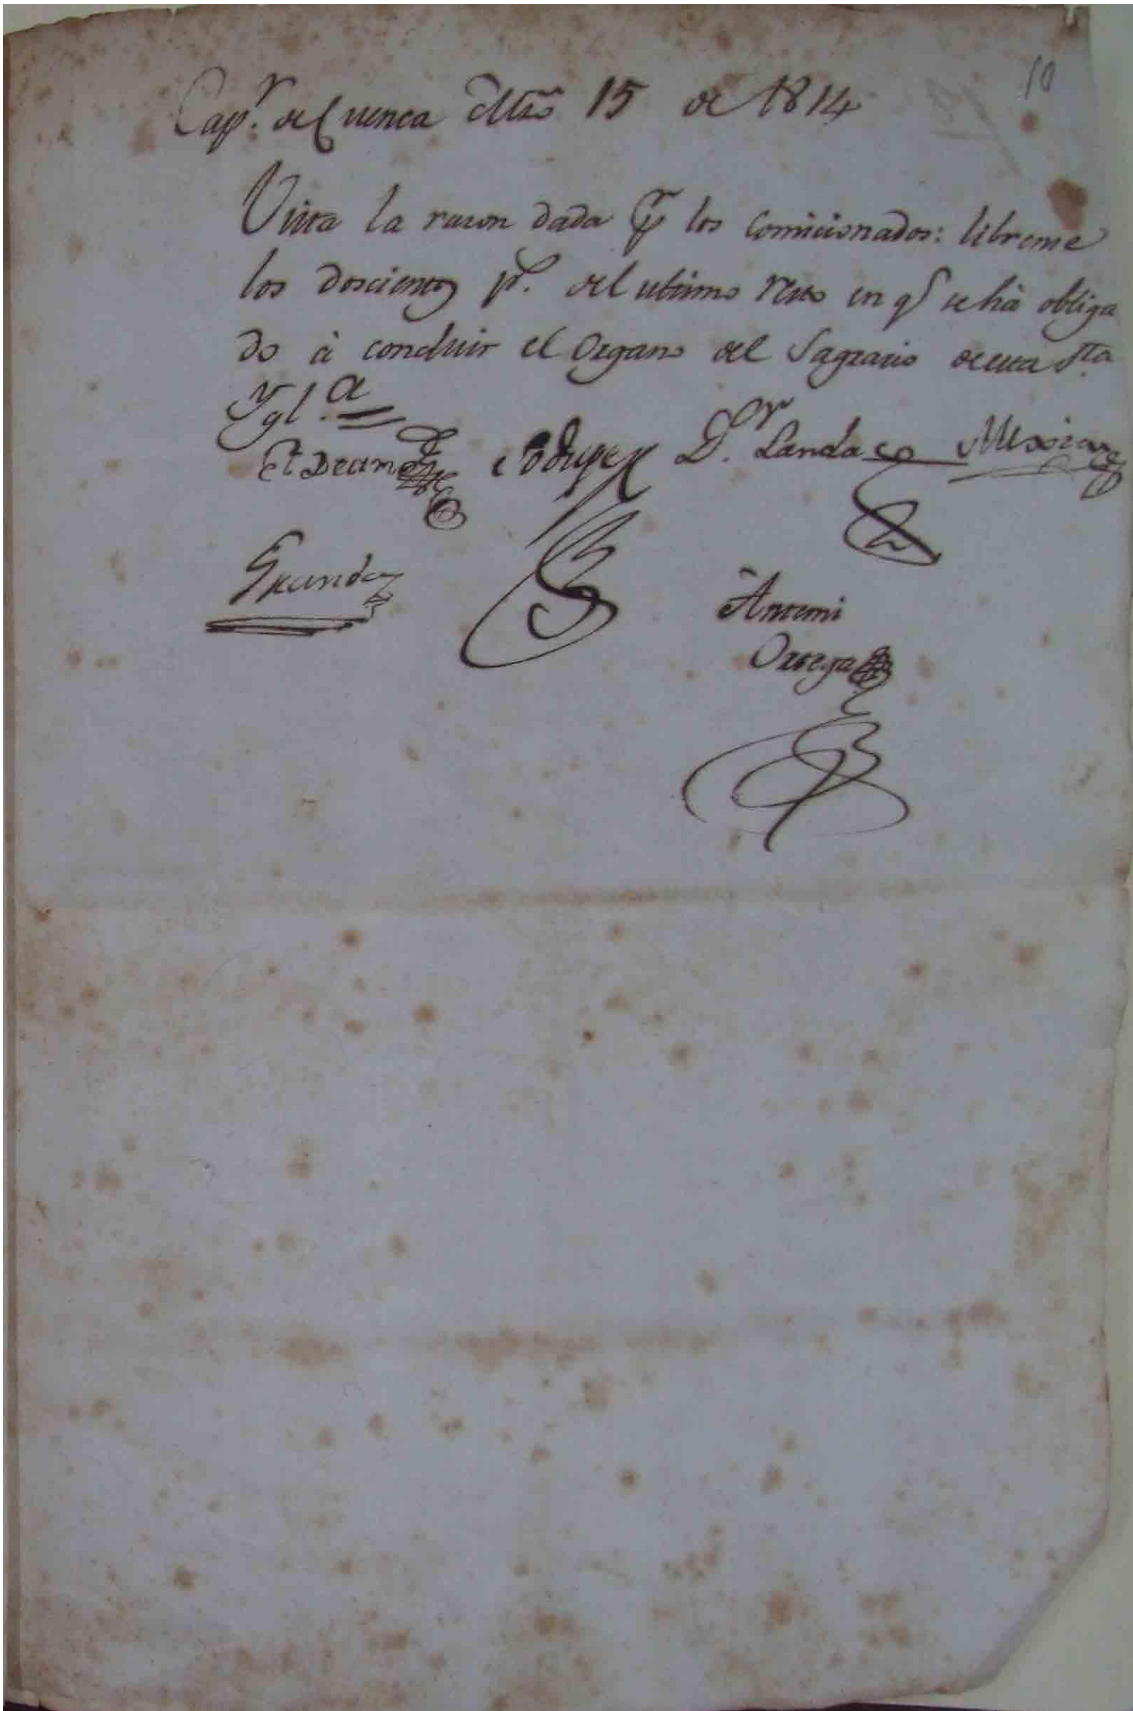 10
Cap.r de Cuenca Mzo 15 de 1814
Vista la razon dada p.r los Comicionados: librense
los doscientos p.s del ultimo resto en q.e se hà obliga
do à concluir el Organo del Sagrario de esta S.ta
Ygl.a
El Dean Rodrigez D.r Landa Mexia
Granda
Ante mi
Ortega